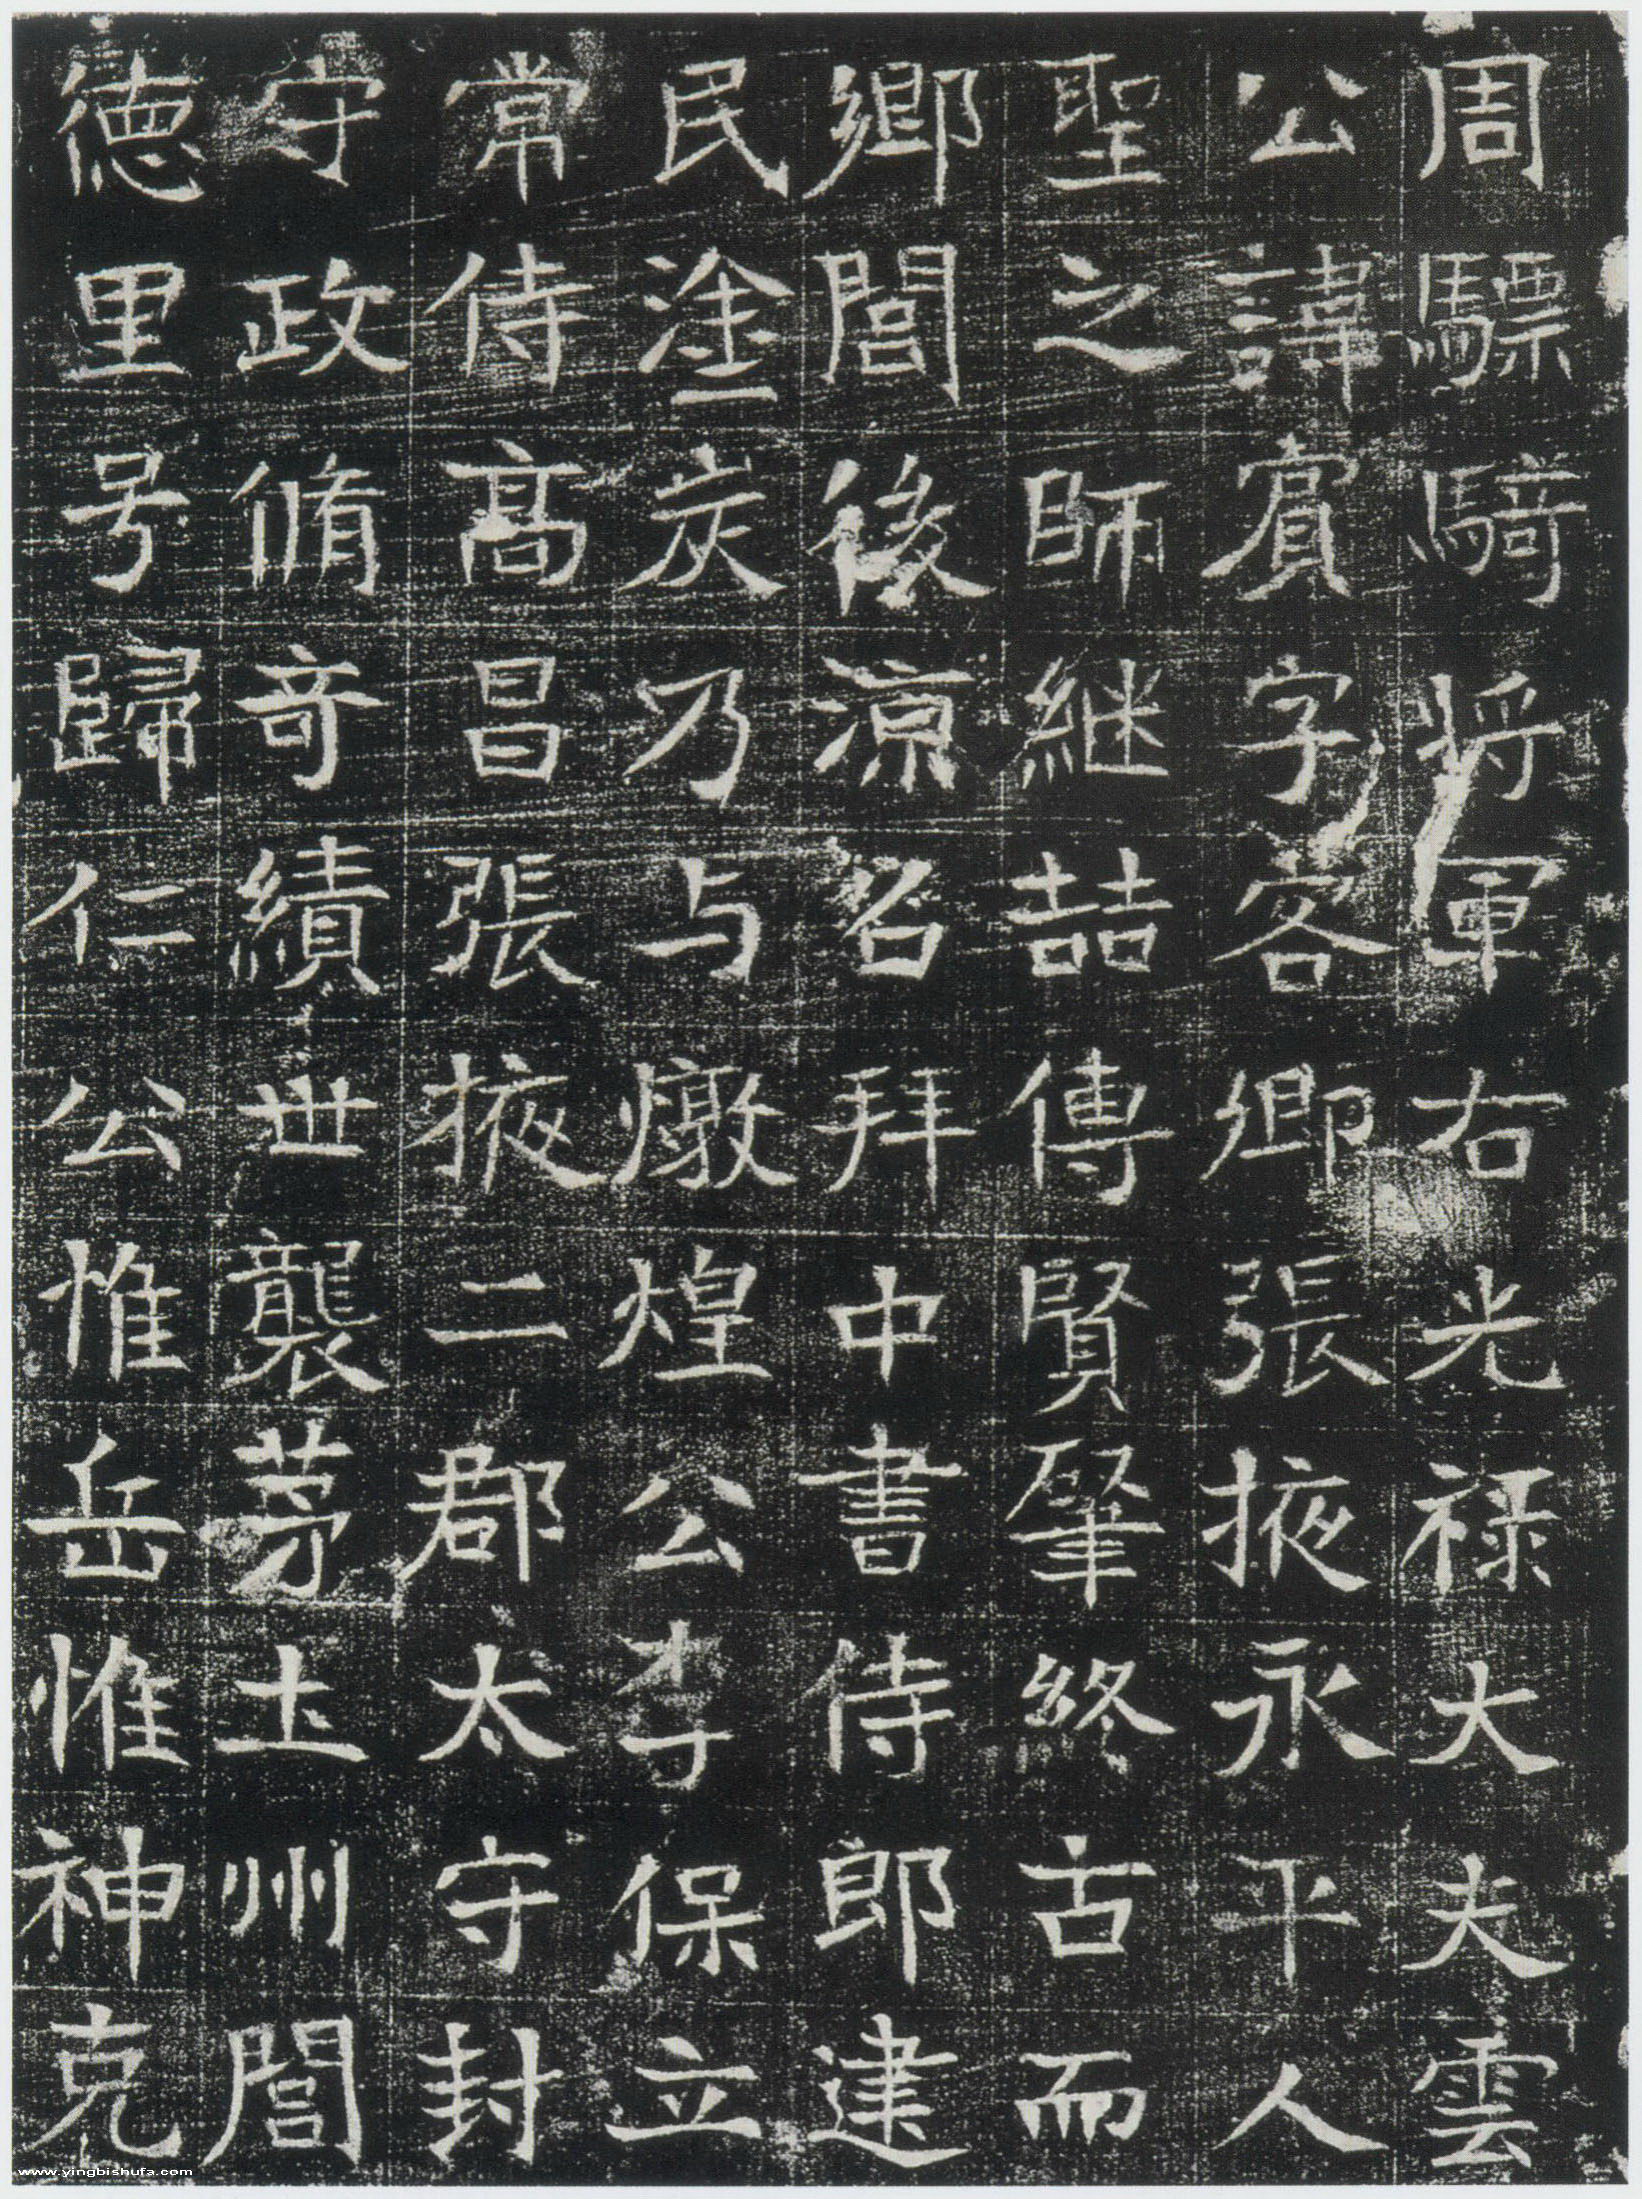 周驃騎將軍右光禄大夫雲
公諱賓字客卿張掖永平人
聖之師継喆傳賢肇終古而
鄉閭後凉名拜中書侍郎建
民塗炭乃与燉煌公李保立
常侍高昌張掖二郡太守封
守政脩奇績世襲茅土州閭
德里号歸仁公惟岳惟神克
www.yingbishufa.com